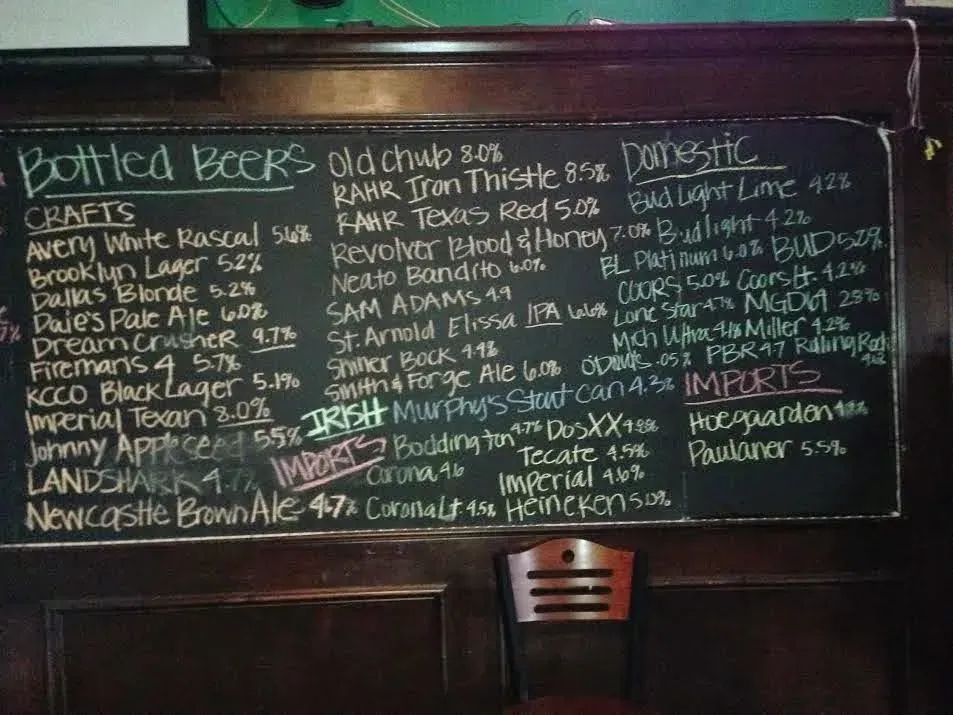 Bottled Beers
CRAFTS
Avery White Rascal 5.6%
Brooklyn Lager 5.2%
Dallas Blonde 5.2%
Dale's Pale Ale 6.0%
Dream Crusher 9.7%
Firemans 4 5.7%
KCCO Black Lager 5.1%
Imperial Texan 8.0%
Johnny Appleseed 5.5%
LANDSHARK 4.7%
Newcastle Brown Ale 4.7%
Old Chub 8.0%
RAHR Iron Thistle 8.5%
RAHR Texas Red 5.0%
Revolver Blood & Honey 7.0%
Neato Bandito 6.0%
SAM ADAMS 4.9
St. Arnold Elissa IPA 6.6%
Shiner Bock 4.4%
Smith & Forge Ale 6.0%
IRISH Murphy's Stout Can 4.3%
IMPORTS
Boddington 4.7% Dos XX 4.8%
Corona 4.6 Tecate 4.5%
Imperial 4.6%
Corona Lt 4.5% Heineken 5.0%
Domestic
Bud Light Lime 4.2%
Bud light 4.2%
BL Platinum 6.0% BUD 5.0%
COORS 5.0% Coors Lt 4.2%
Lone Star 4.7% MGD64 2.8%
Mich Ultra 4.1% Miller 4.2%
O'Douls .05% PBR 4.7 Rolling Rock
IMPORTS
Hoegaarden 4.9%
Paulaner 5.5%